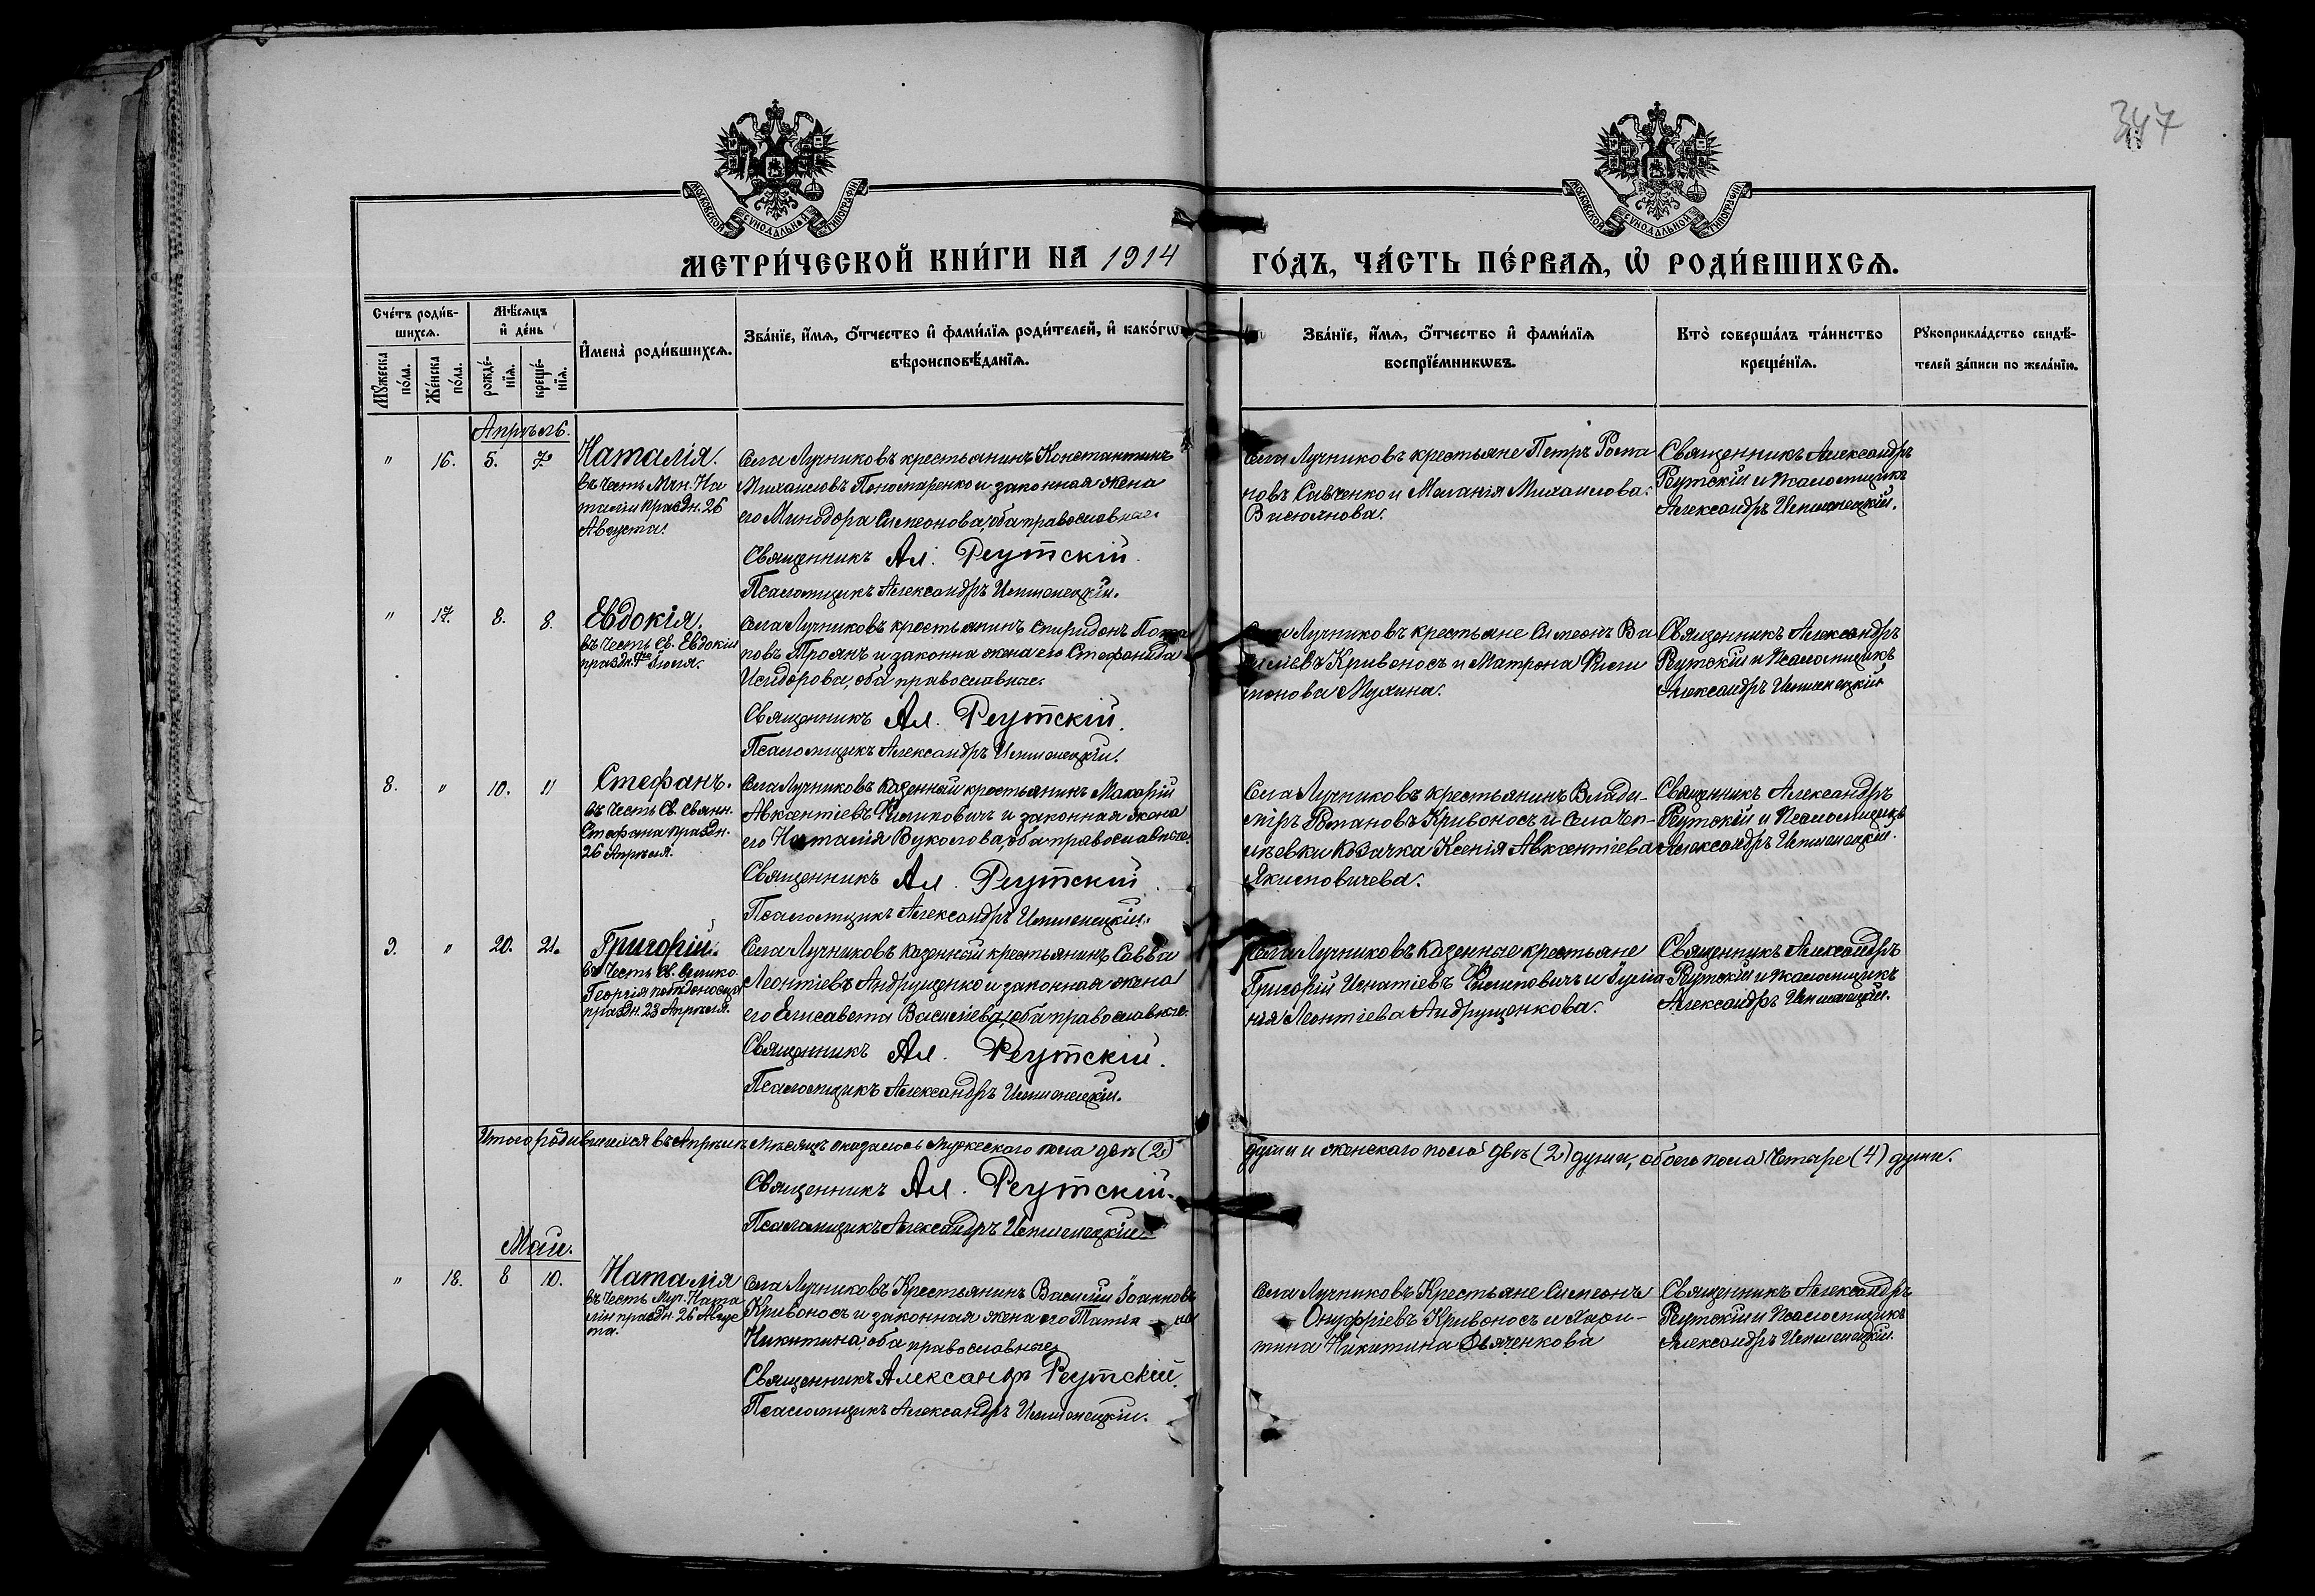 347
МОСКОВСКОЙ СУНОДАЛЬНОЙ ТИПОГРАФІИ
МОСКОВСКОЙ СУНОДАЛЬНОЙ ТИПОГРАФІИ
МЕТРИ́ЧЕСКОЙ КНИ́ГИ НА 1914
ГО́ДЪ, ЧА́СТЬ ПЕ́РВАѦ, Ѽ РОДИ́ВШИХСѦ.
Сче́тъ роди́в-
шихсѧ.
Мѣ́сѧцъ
и҆ де́нь
Мꙋжеска
по́ла.
Же́нска
по́ла.
рожде́-
нїѧ.
креще́-
нїѧ.
И҆мена̀ роди́вшихсѧ.
Зва́нїе, и҆́мѧ, ѻ҆́тчество и҆ фами́лїѧ роди́телей, и҆ како́гѡ
вѣроисповѣ́данїѧ.
Зва́нїе, и҆́мѧ, ѻ҆́тчество и҆ фами́лїѧ
воспрїе́мникѡвъ.
Кто̀ соверша́лъ та́инство
креще́нїѧ.
Рꙋкоприкла́дство свидѣ́-
телей за́писи по жела́нїю.
Апрѣль.
" 16. 5. 7.
Наталія.
въ честь Мчн. На
таліи праздн. 26
Августа.
Села Лучниковъ крестьянинъ Константинъ
Михаиловъ Пономаренко и законная жена
его Минодора Симеонова, оба православные.
Священникъ Ал. Реутскій.
Псаломщикъ Александръ
Села Лучниковъ крестьяне Петръ Рома
новъ Савченко и Меланія Михаилова
Священникъ Александръ
Реутскій и псаломщикъ
Александръ
" 17. 8. 8.
Евдокія.
въ честь Св. Евдокіи
праздн.
Села Лучниковъ крестьянинъ Спиридонъ
повъ Троянъ и законна жена его Стефанида
Исидорова, оба православные.
Священникъ Ал. Реутскій.
Псаломщикъ Александръ
Села Лучниковъ крестьяне Симеонъ Ва
силіевъ Кривоносъ и Матрона Фили
монова
Священникъ Александръ
Реутскій и псаломщикъ
Александръ
8. " 10. 11
Стефанъ.
въ честь Св. Свящн.
Стефана праздн.
26 Апрѣля.
Села Лучниковъ казенный крестьянинъ Макарій
Авксентіевъ Филиповичъ и законная жена
его Наталія Вуколова, оба православные.
Священникъ Ал. Реутскій
Псаломщикъ Александръ
Села Лучниковъ крестьянинъ Влади-
міръ Романовъ Кривоносъ и села Чеп-
илѣвки козачка Ксенія Авксентіева
Якимовичева.
Священникъ Александръ
Реутскій и Псаломщикъ
Александръ
9. " 20. 21.
Григорій.
въ честь Св. Велико.
Георгія побѣдоносца
праздн. 23 Апрѣля.
Села Лучниковъ казенный крестьянинъ Савва
Леонтіевъ Андрущенко и законная жена
его Елисавета Василіева, оба православные.
Священникъ Ал. Реутскій.
Псаломщикъ Александръ
Села Лучниковъ казенные крестьяне
Григорій Игнатіевъ Филиповичъ и Іулiа
нія Леонтіева Андрущенкова.
Священникъ Александръ
Реутскій и псаломщикъ
Александръ
Итого родившихся въ Апрѣлѣ мѣсяцѣ оказалось мужескаго пола двѣ (2)
души и женскаго пола двѣ (2) души, обоего пола четыре (4) души.
Священникъ Ал. Реутскій.
Псаломщикъ Александръ
Май.
" 18. 8 10.
Наталія
въ честь Муч. Ната
ліи праздн. 26 Авгус
та.
Села Лучниковъ Крестьянинъ Василій Іоанновъ
Кривоносъ и законная жена его Татiа на
Никитина, оба православные
Священникъ Александръ Реутскій.
Псаломщикъ Александръ
Села Лучниковъ Крестьяне Симеонъ
Онуфріевъ Кривоносъ и Хри-
тина Никитина Дьяченкова
Священникъ Александръ
Реутскій и Псаломщикъ
Александръ